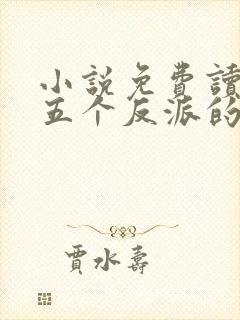 小説免費讀
五个反派的
賈水壽